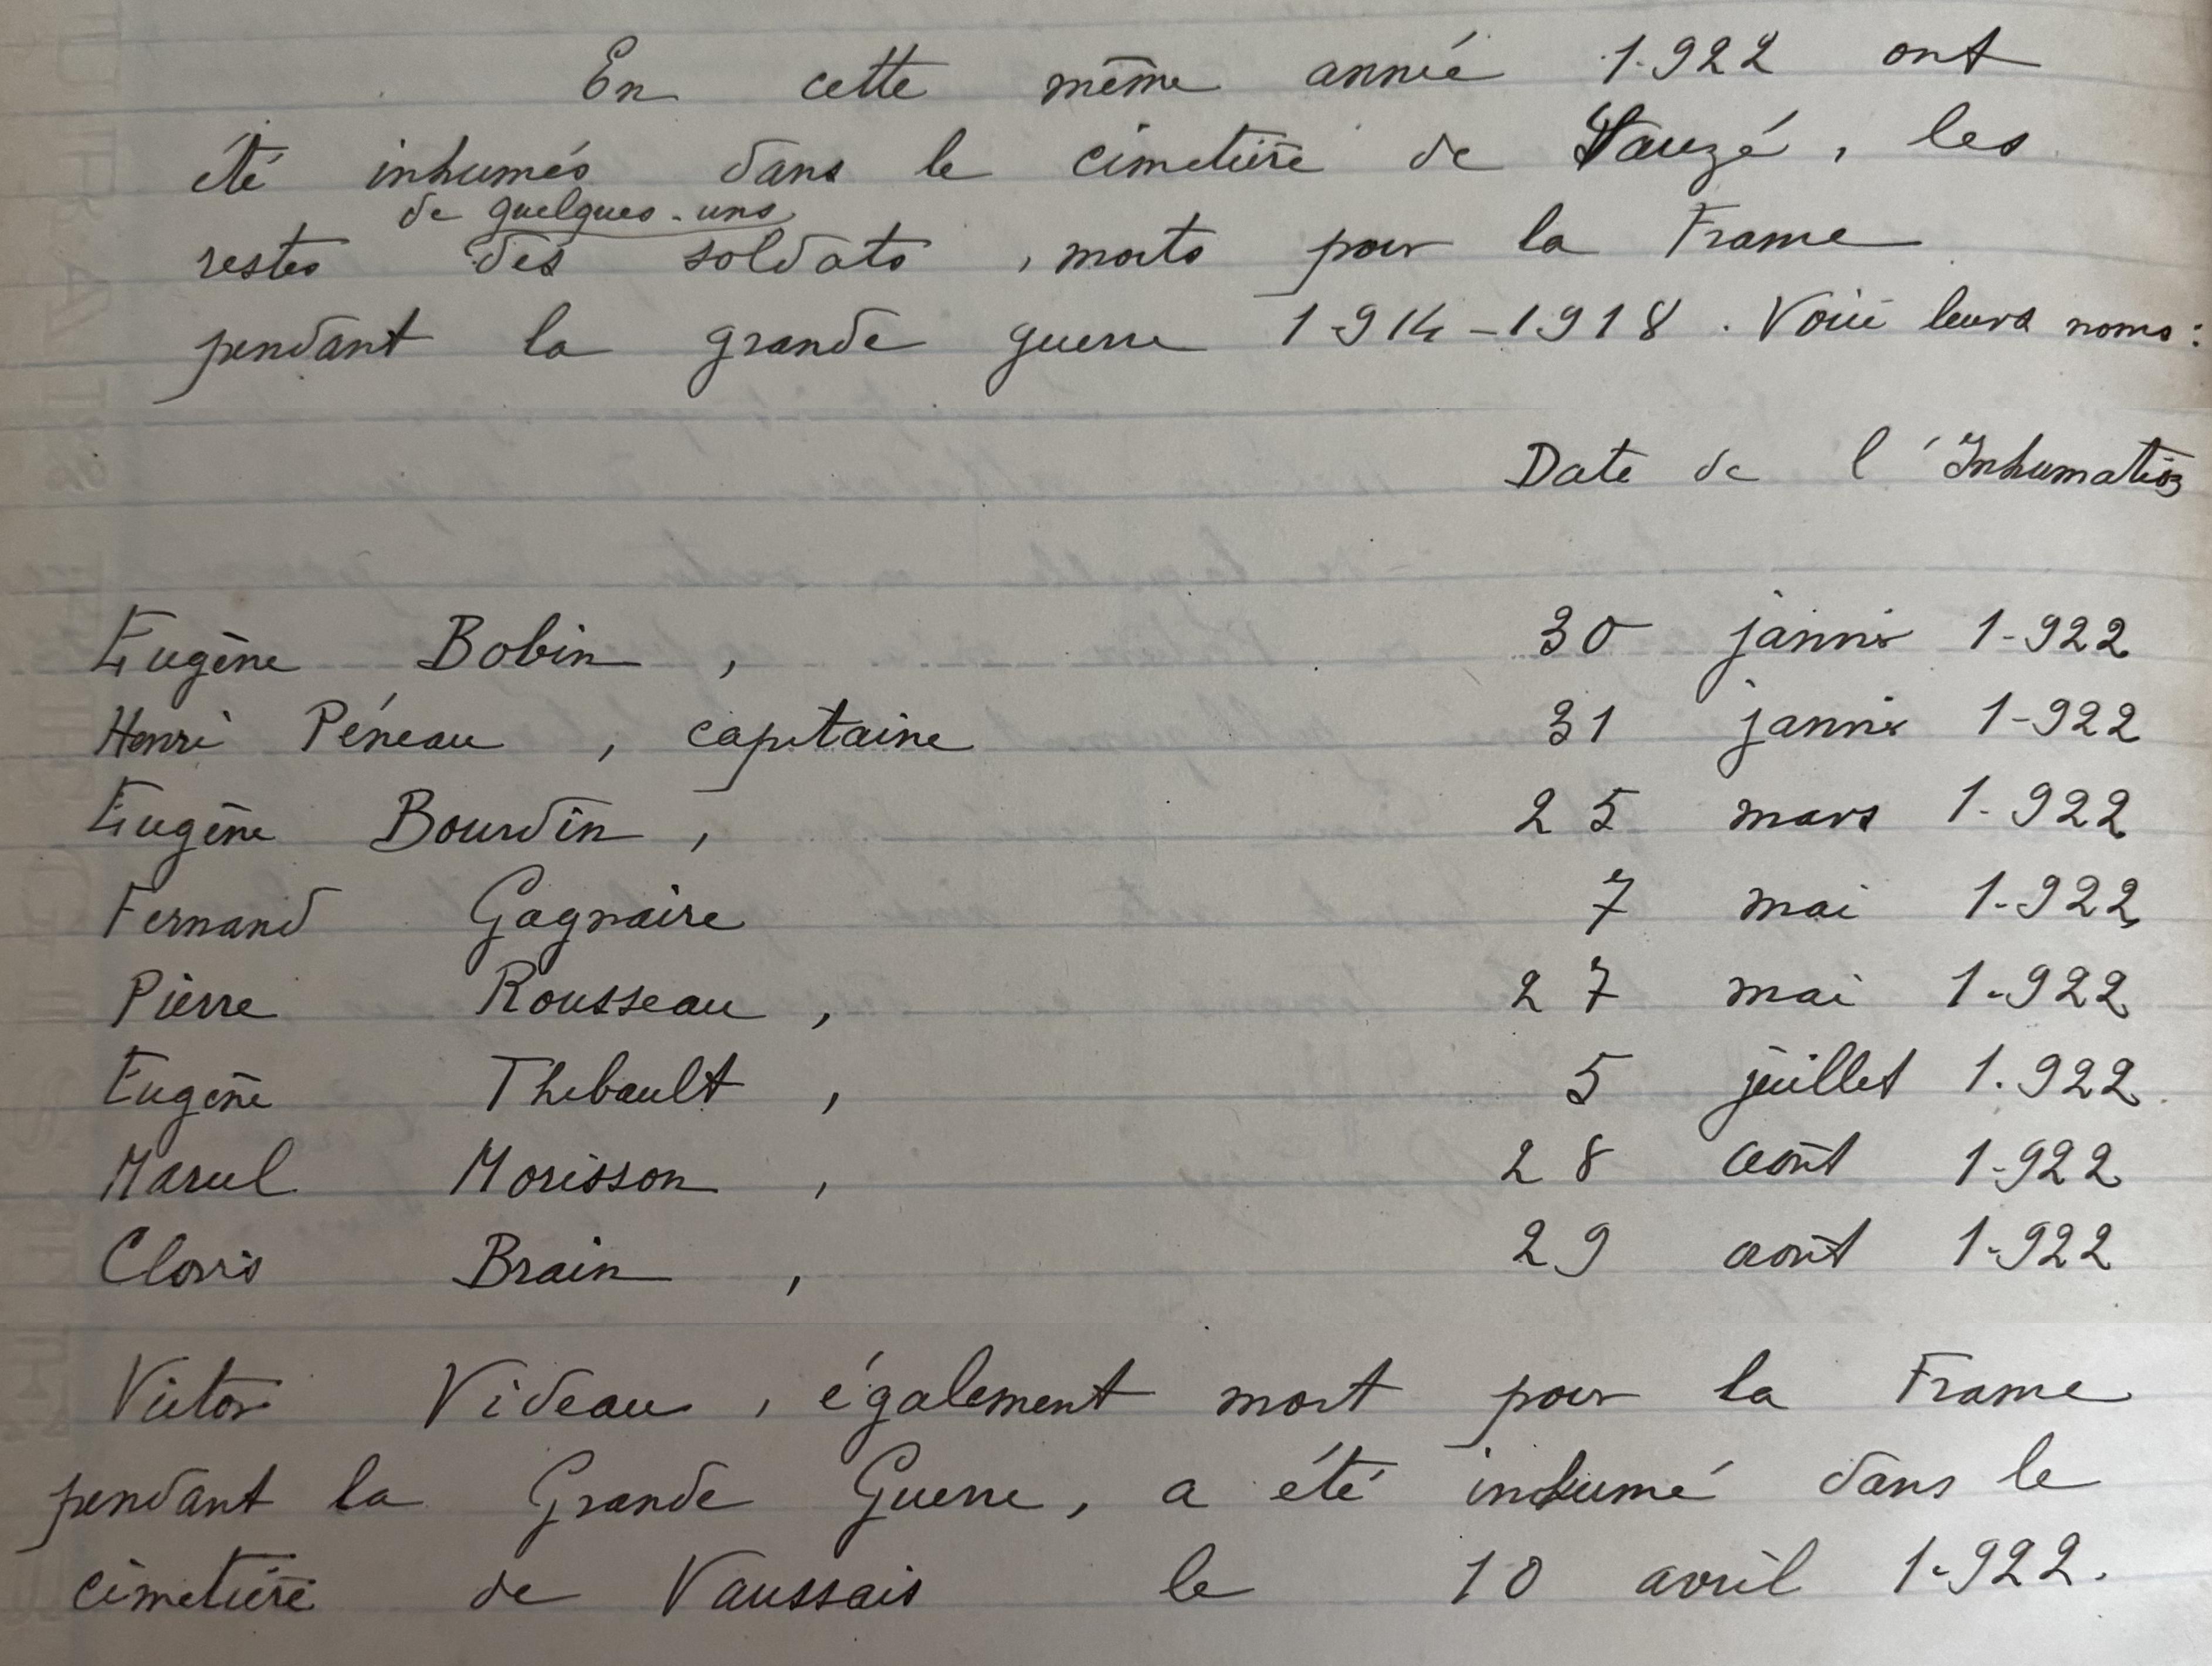 En cette même année 1.922 ont
été inhumés dans le cimetière de Sauzé, les
de quelques-uns
restes des soldats, morts pour la France
pendant la grande guerre 1914-1918. Voici leurs noms:
Date de l'Inhumation
Eugène Bobin, 30 janvier 1-922
Henri Péneau, capitaine 31 janvier 1-922
Eugène Bourdin, 25 mars 1-922
Fernand Gagnaire 7 mai 1-922
Pierre Rousseau, 27 mai 1-922
Eugène Thebault, 5 juillet 1.922
Marcel Morisson, 28 août 1-922
Clovis Brain, 29 août 1-922
Victor Videau, également mort pour la France
pendant la Grande Guerre, a été inhumé dans le
cimetière de Vaussais le 10 avril 1-922.